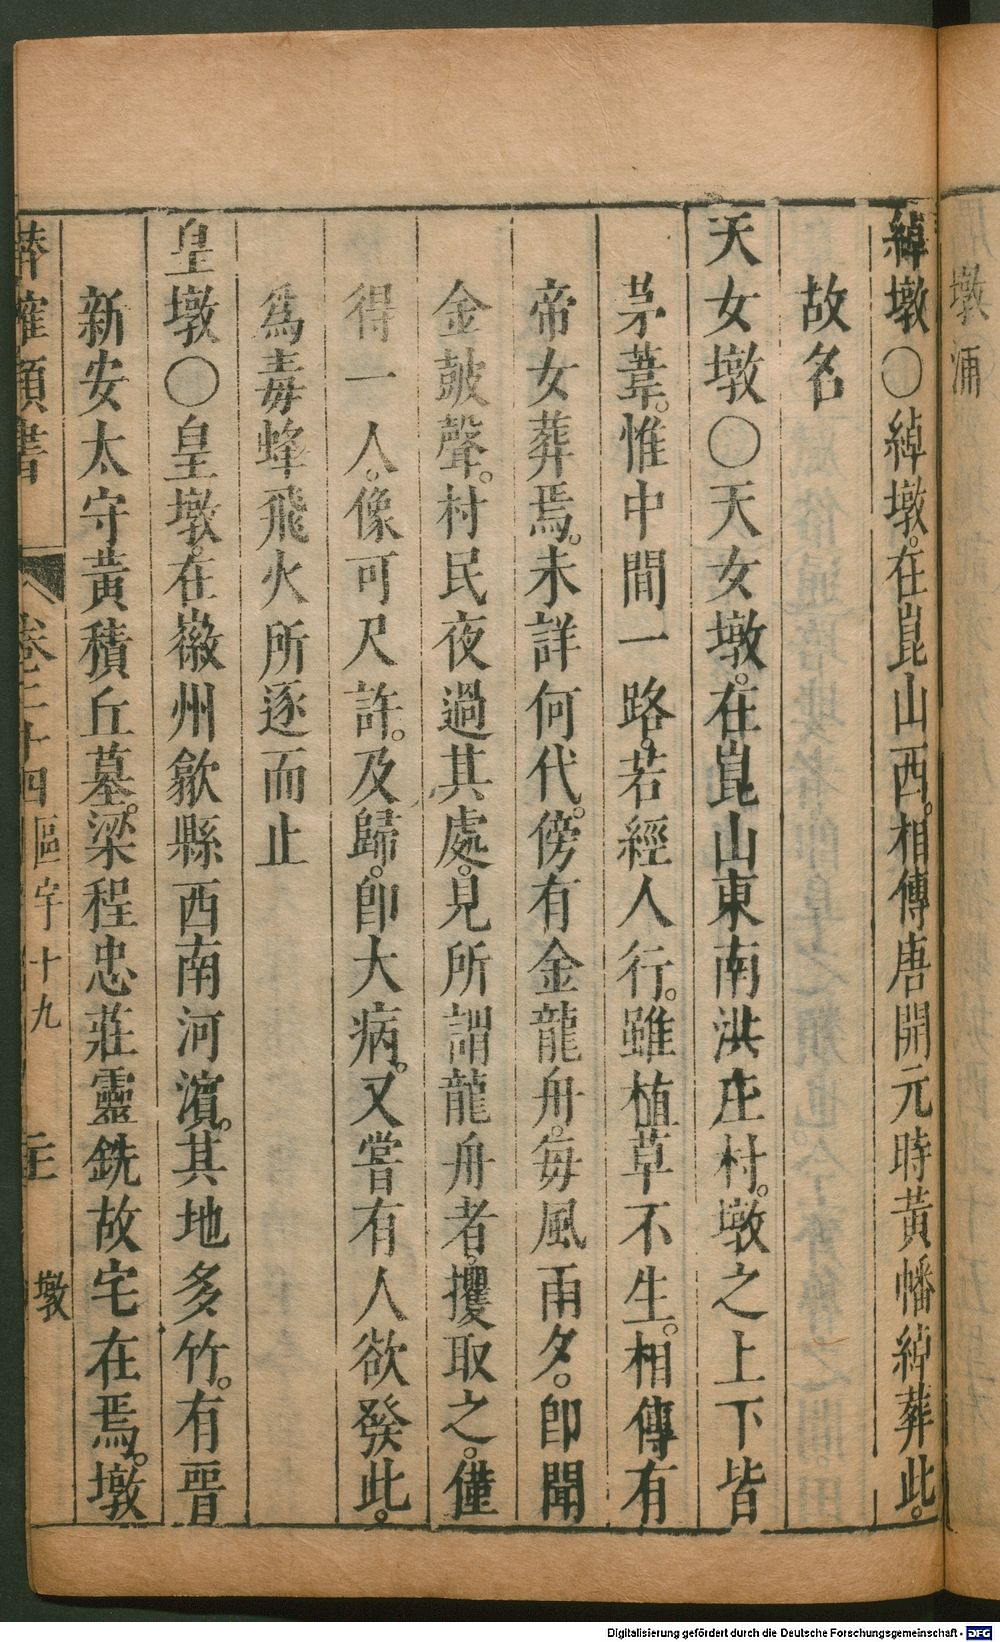 綽墩○綽墩。在崑山西。相傳唐開元時黃幡綽葬此。
故名
天女墩○天女墩。在崑山東南洪庄村。墩之上下皆
茅葦。惟中間一路。若經人行。雖植草不生。相傳有
帝女葬焉。未詳何代。傍有金龍舟。每風雨夕。即聞
金皷聲。村民夜過其處。見所謂龍舟者。攫取之。僅
得一人。像可尺許。及歸。即大病。又嘗有人欲發此。
爲毒蜂飛火所逐而止
皇墩○皇墩。在徽州歙縣西南河濵。其地多竹。有晉
新安太守黃積丘墓。梁程忠莊靈銑故宅在焉。墩
類書 卷 十四 區宇十九 墩
墩
Digitalisierung gefördert durch die Deutsche Forschungsgemeinschaft - DFG